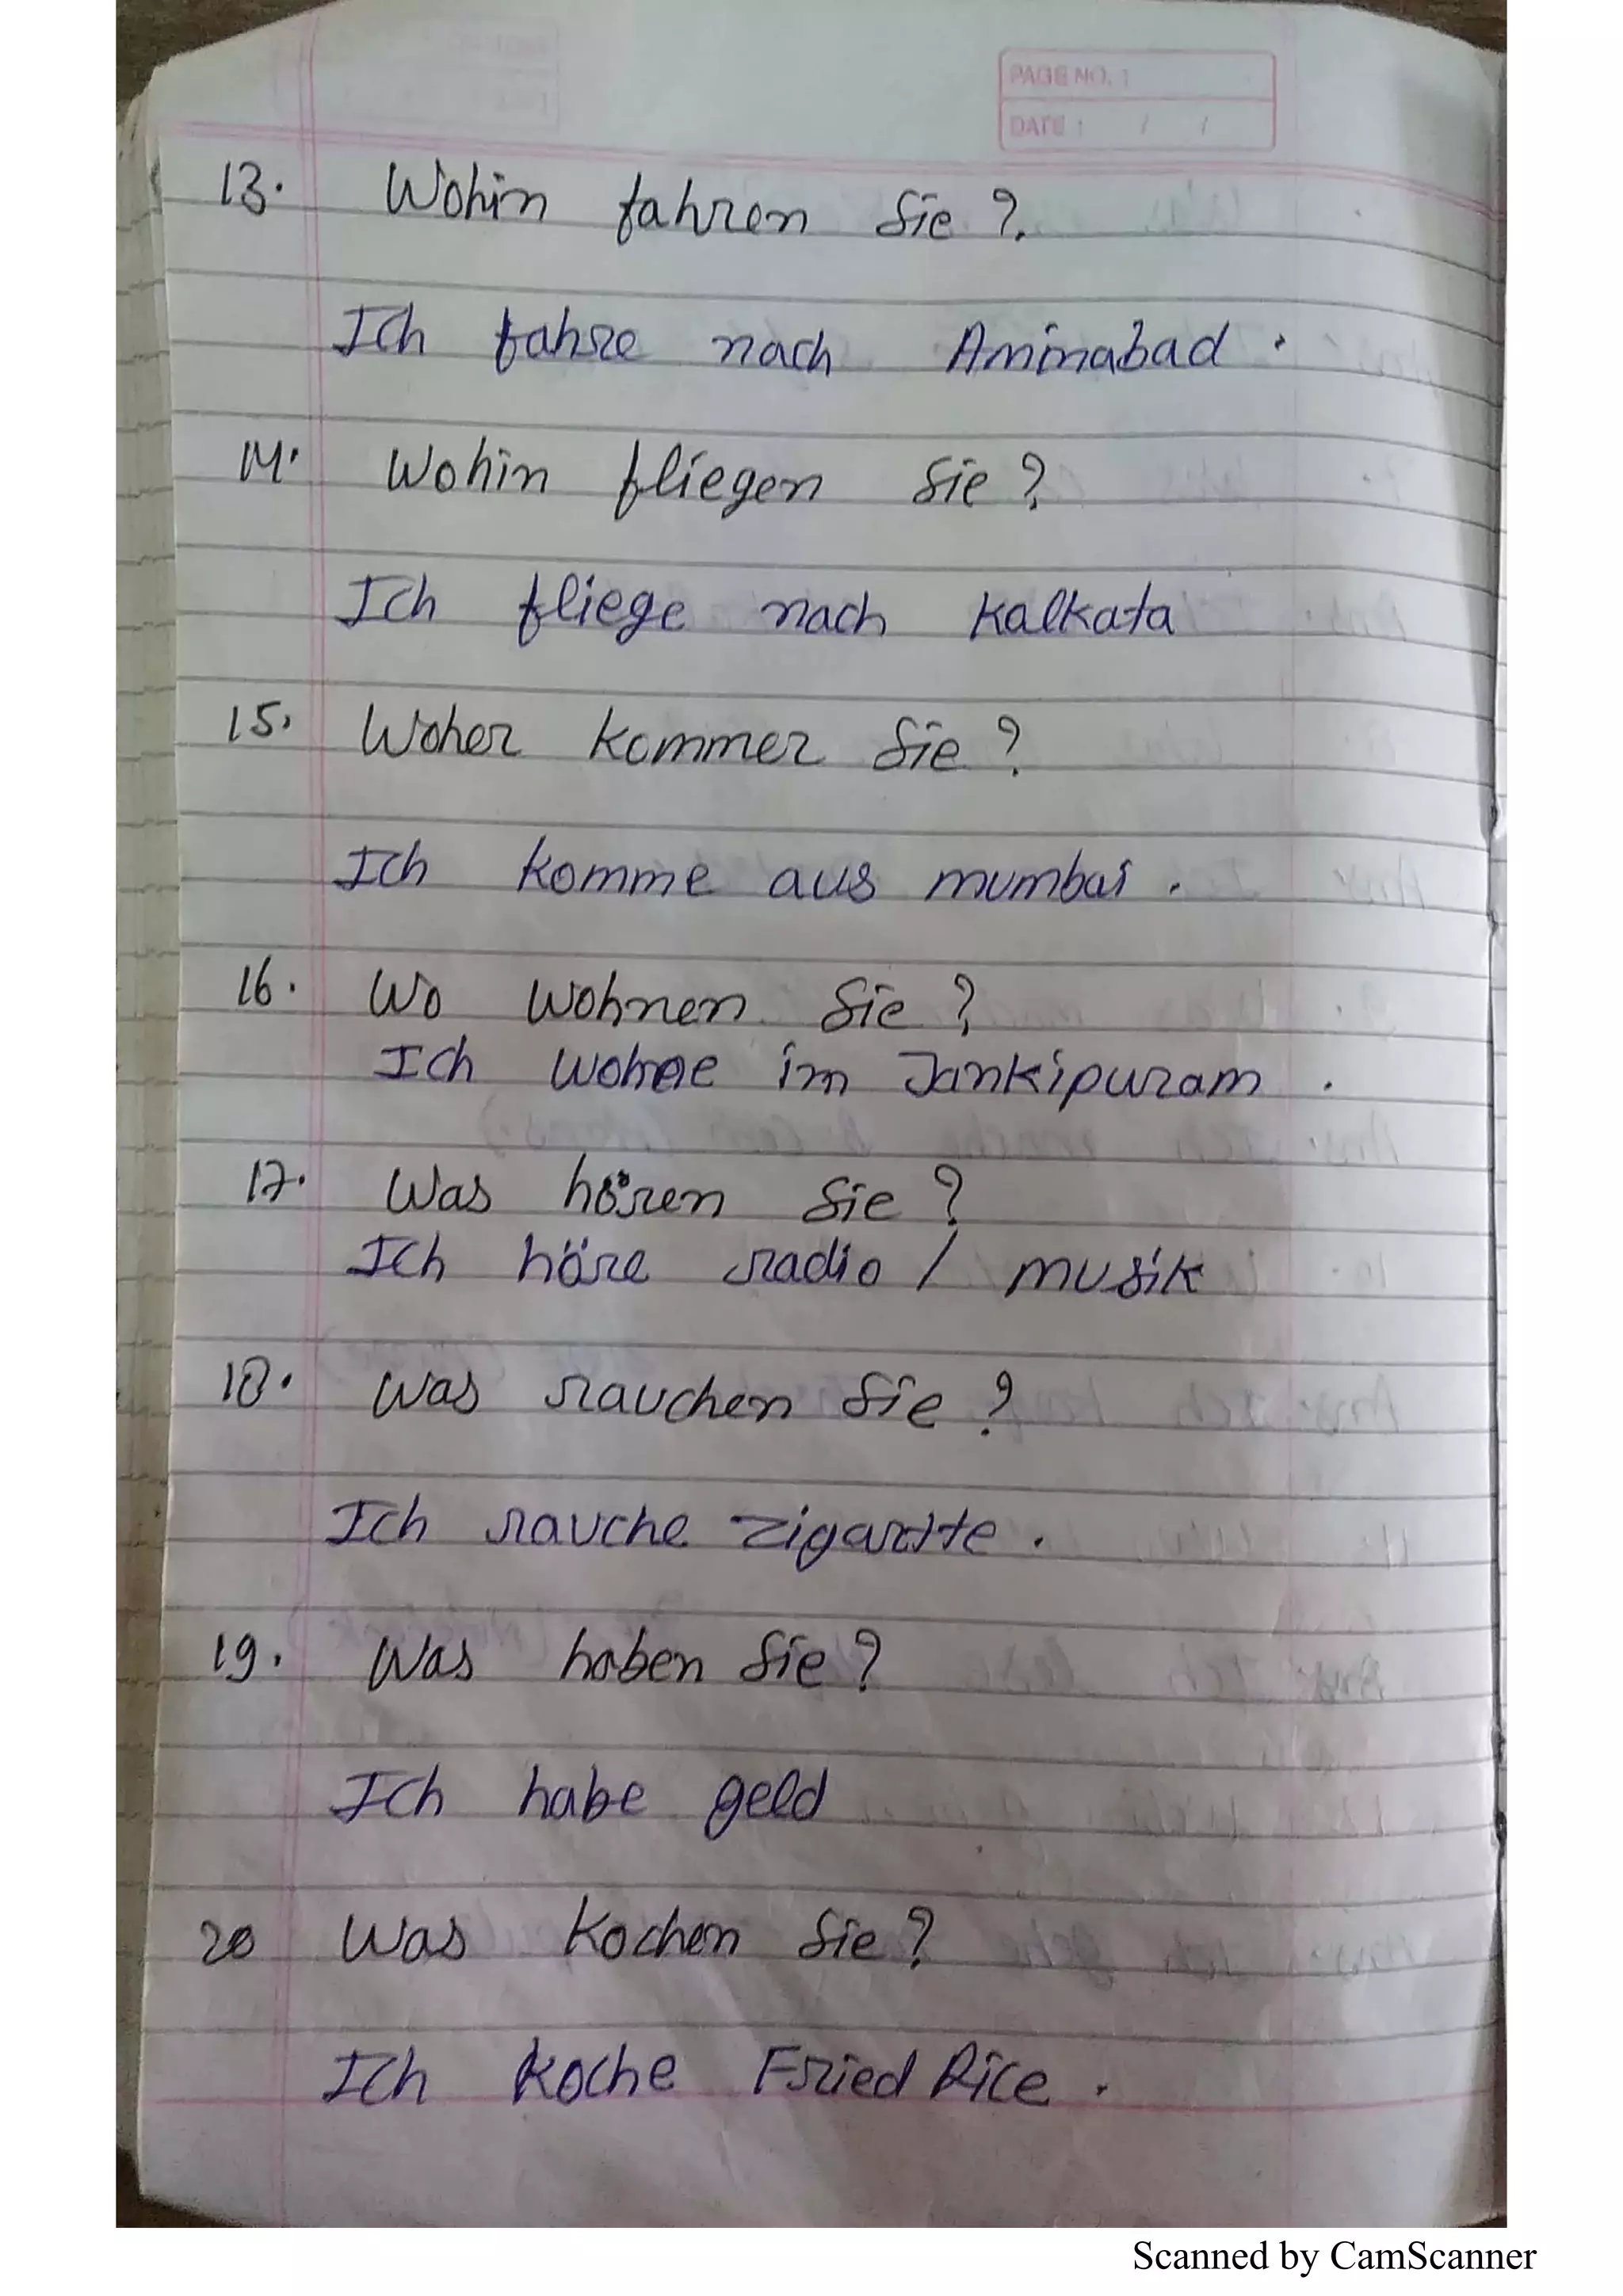 PAGE NO. :
DATE : / /
13. Wohin fahren Sie ?
Ich fahre nach Aminabad .
14. Wohin fliegen Sie ?
Ich fliege nach Kalkata
15. Woher kommer Sie ?
Ich komme aus mumbai .
16. Wo wohnen Sie ?
Ich wohne im Jankipuram .
17. Was hören Sie ?
Ich höre radio / musik
18. Was rauchen Sie ?
Ich rauche zigarette .
19. Was haben Sie ?
Ich habe geld
20 Was Kochen Sie ?
Ich Koche Fried Rice .
Scanned by CamScanner